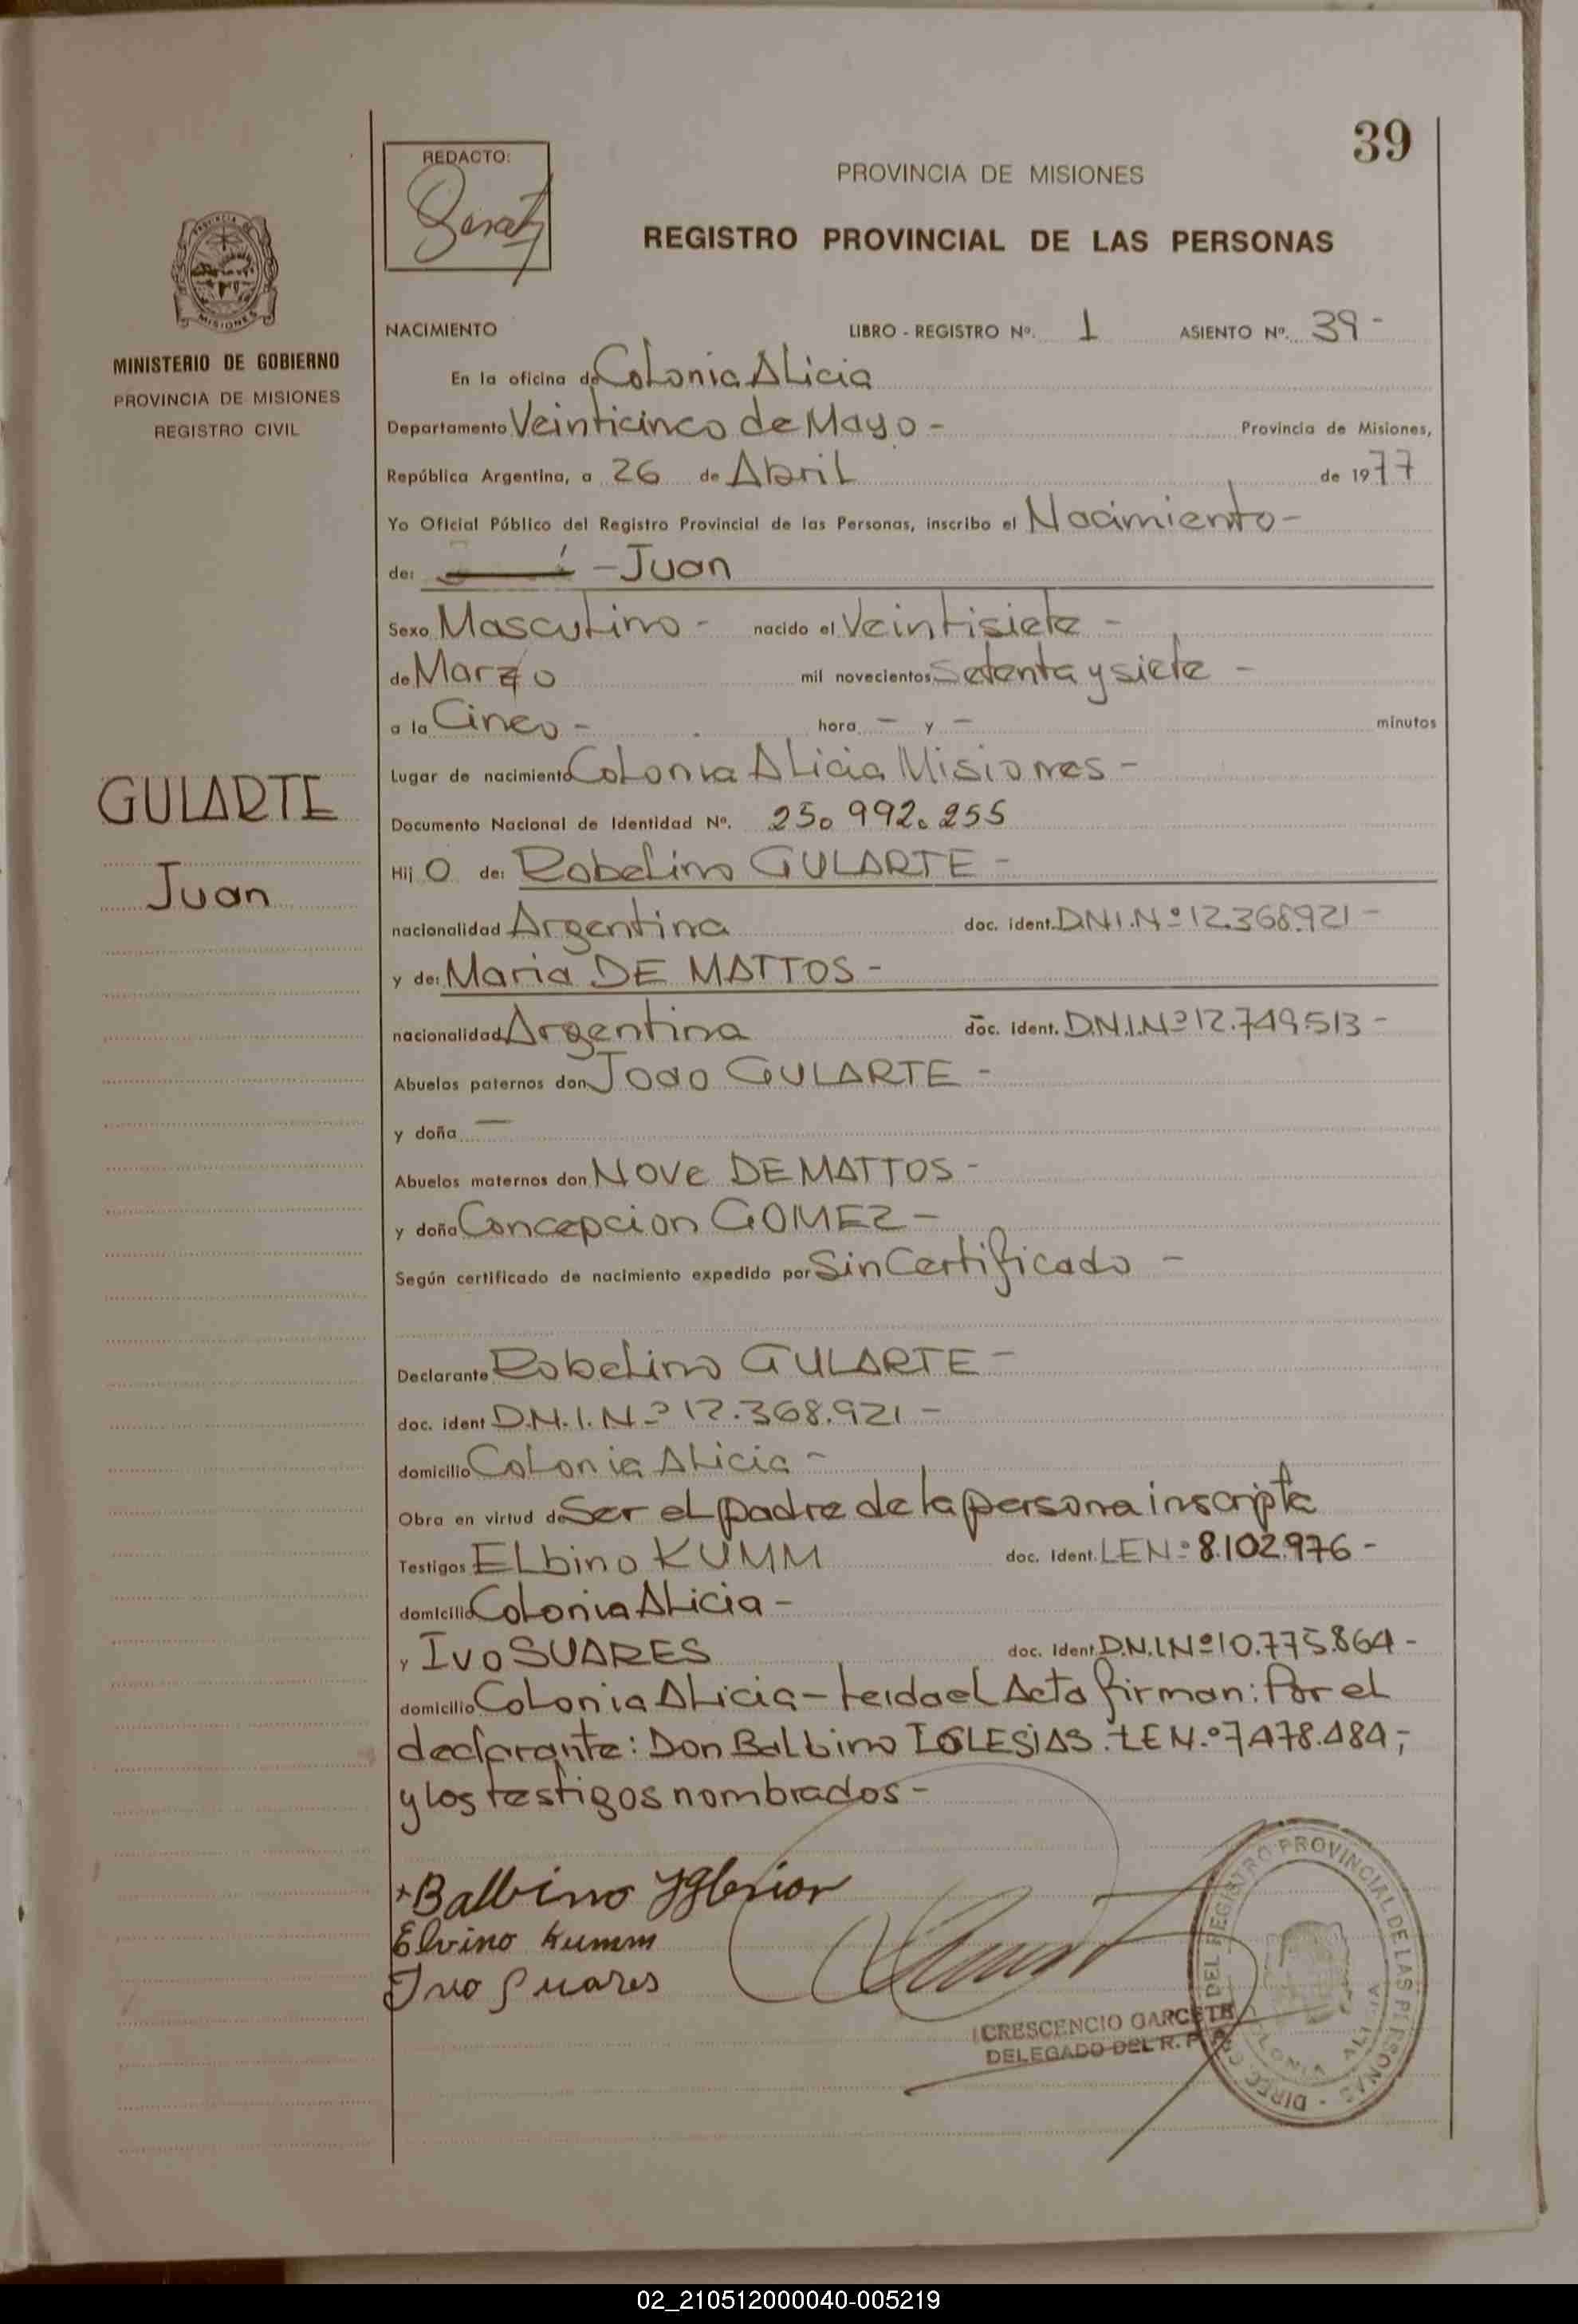 39
REDACTO:
PROVINCIA DE MISIONES
REGISTRO PROVINCIAL DE LAS PERSONAS
MISIONES
MINISTERIO DE GOBIERNO
PROVINCIA DE MISIONES
REGISTRO CIVIL
NACIMIENTO LIBRO - REGISTRO Nº. 1 ASIENTO Nº. 39 -
En la oficina de Colonia Alicia
Departamento Veinticinco de Mayo - Provincia de Misiones,
República Argentina, a 26 de Abril de 1977
Yo Oficial Público del Registro Provincial de las Personas, inscribo el Nacimiento -
de: - Juan
Sexo Masculino - nacido el Veintisiete -
de Marzo mil novecientos Setenta y siete -
a la Cinco - hora - y - minutos
Lugar de nacimiento Colonia Alicia Misiones -
GULARTE
Juan
Documento Nacional de Identidad Nº. 25.992.255
Hij O de: Robelino GULARTE -
nacionalidad Argentina doc. ident. D.N.I.Nº 12.368.921 -
y de: Maria DE MATTOS -
nacionalidad Argentina doc. ident. D.N.I.Nº 12.749.513 -
Abuelos paternos don Joao GULARTE -
y doña -
Abuelos maternos don Nove DE MATTOS -
y doña Concepcion GOMEZ -
Según certificado de nacimiento expedido por Sin Certificado -
Declarante Robelino GULARTE -
doc. ident D.N.I.Nº 12.368.921 -
domicilio Colonia Alicia -
Obra en virtud de Ser el padre de la persona inscripta
Testigos Elbino KUMM doc. ident. LENº 8.102.976 -
domicilio Colonia Alicia -
y Ivo SUARES doc. ident. D.N.I.Nº 10.775.864 -
domicilio Colonia Alicia - Leida el Acta firman: Por el
declarante: Don Balbino IGLESIAS. LE N.º 7.478.484;
y los testigos nombrados -
+ Balbino Yglesias
Elvino Kumm
Ivo Suares
CRESCENCIO GARCETE
DELEGADO DEL R. P. P.
DIREC. G. DEL REGISTRO PROVINCIAL DE LAS PERSONAS -
COLONIA ALICIA
02_210512000040-005219